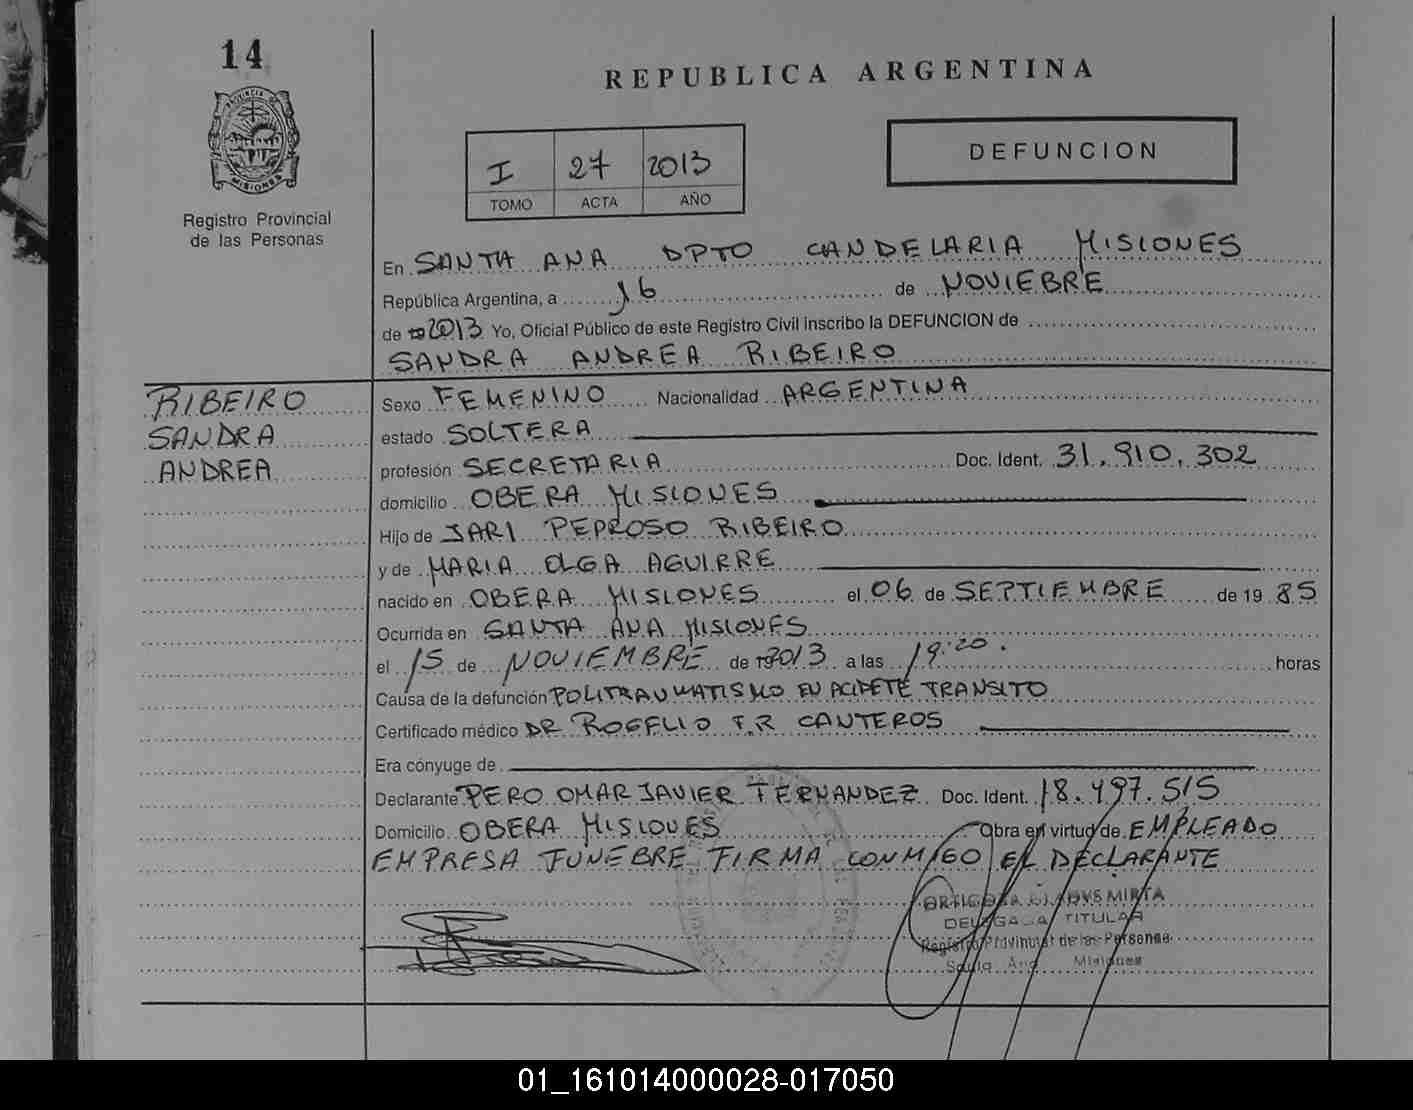 14
REPUBLICA ARGENTINA
PROVINCIA DE
MISIONES
Registro Provincial
de las Personas
DEFUNCION
I 27 2013
TOMO ACTA AÑO
En SANTA ANA DPTO CANDELARIA MISIONES
República Argentina, a 16 de NOVIEBRE
de 2013 Yo, Oficial Público de este Registro Civil inscribo la DEFUNCION de
SANDRA ANDREA RIBEIRO
RIBEIRO
SANDRA
ANDREA
Sexo FEMENINO Nacionalidad ARGENTINA
estado SOLTERA
profesión SECRETARIA Doc. Ident. 31.910.302
domicilio OBERA MISIONES
Hijo de JARI PEPROSO RIBEIRO
y de MARIA OLGA AGUIRRE
nacido en OBERA MISIONES el 06 de SEPTIEMBRE de 19 85
Ocurrida en SANTA ANA MISIONES
el 15 de NOVIEMBRE de 2013 a las 19:20. horas
Causa de la defunción POLITRAUMATISMO EN ACIDETE TRANSITO
Certificado médico DR ROGELIO F.R CANTEROS
Era cónyuge de
Declarante PERO OMAR JAVIER FERNANDEZ Doc. Ident. 18.497.515
Domicilio OBERA MISIONES Obra en virtud de EMPLEADO
EMPRESA FUNEBRE FIRMA CONMIGO EL DECLARANTE
GLADYS MIRTA
DELEGADA TITULAR
Registro Provincial de las Personas
Santa Ana Misiones
01_161014000028-017050